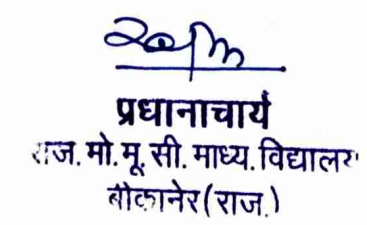 प्रधानाचार्य
राज. मो. मू. सी. माध्य. विद्यालय
बीकानेर (राज.)